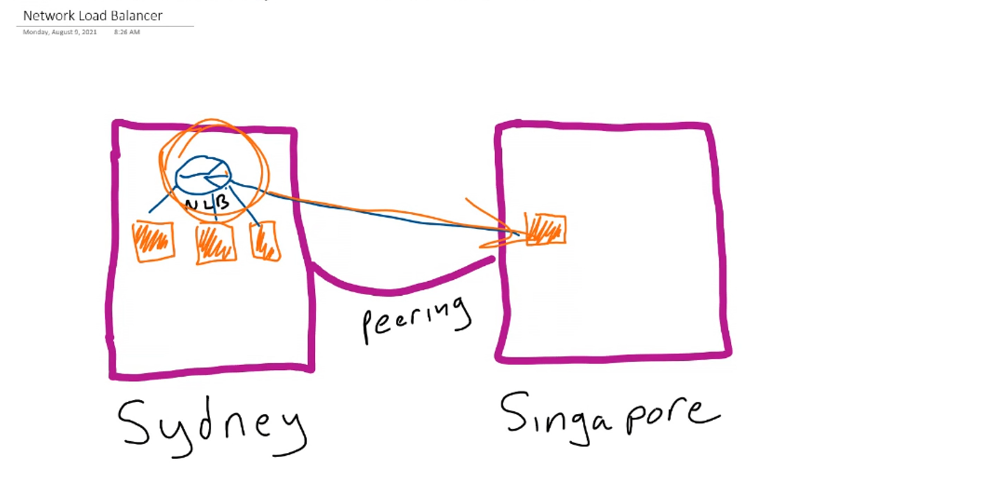 Network Load Balancer
Monday, August 9, 2021 8:26 AM
NLB
peering
Sydney
Singapore